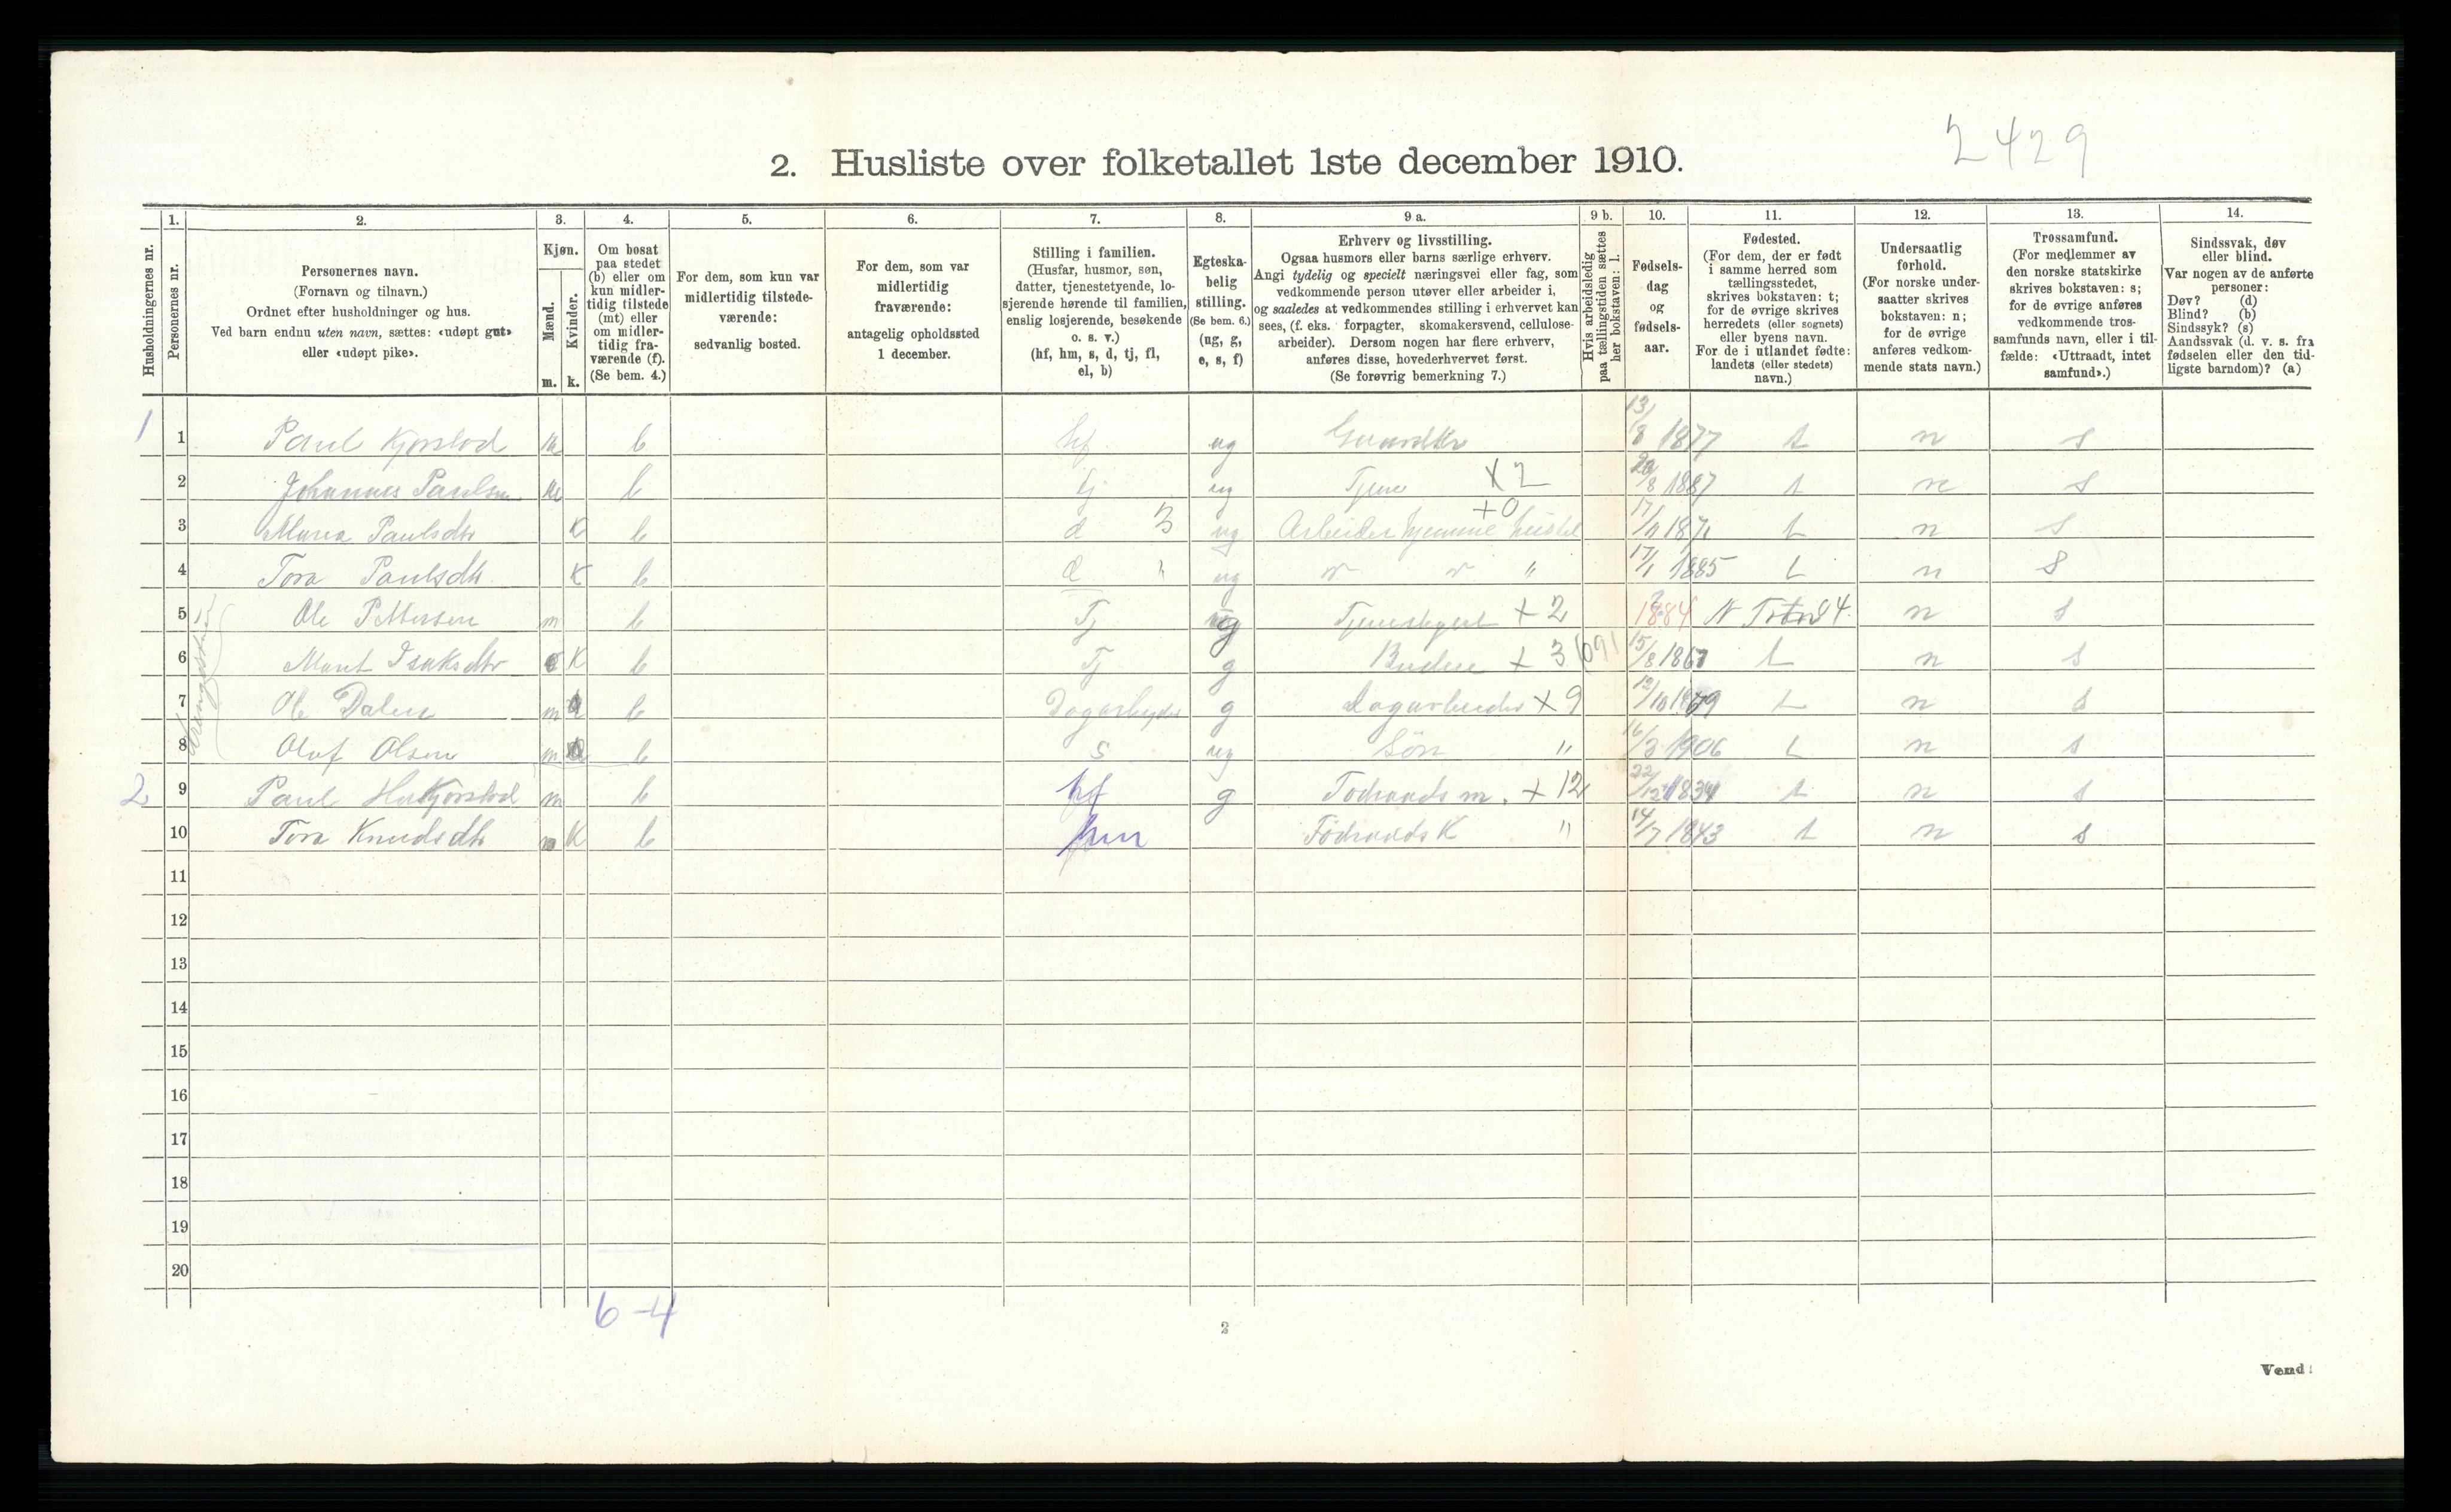 2429
2. Husliste over folketallet 1ste december 1910.
Husholdningernes nr.
1.
Personernes nr.
2.
Personernes navn.
(Fornavn og tilnavn.)
Ordnet efter husholdninger og hus.
Ved barn endnu uten navn, sættes: «udøpt gut»
eller «udøpt pike».
3.
Kjøn.
Mænd.
Kvinder.
m. k.
4.
Om bosat
paa stedet
(b) eller om
kun midler-
tidig tilstede
(mt) eller
om midler-
tidig fra-
værende (f).
(Se bem. 4.)
5.
For dem, som kun var
midlertidig tilstede-
værende:
sedvanlig bosted.
6.
For dem, som var
midlertidig
fraværende:
antagelig opholdssted
1 december.
7.
Stilling i familien.
(Husfar, husmor, søn,
datter, tjenestetyende, lo-
sjerende hørende til familien,
enslig losjerende, besøkende
o. s. v.)
(hf, hm, s, d, tj, fl,
el, b)
8.
Egteska-
belig
stilling.
(Se bem. 6.)
(ug, g,
e, s, f)
9 a.
Erhverv og livsstilling.
Ogsaa husmors eller barns særlige erhverv.
Angi tydelig og specielt næringsvei eller fag, som
vedkommende person utøver eller arbeider i,
og saaledes at vedkommendes stilling i erhvervet kan
sees, (f. eks. forpagter, skomakersvend, cellulose-
arbeider). Dersom nogen har flere erhverv,
anføres disse, hovederhvervet først.
(Se forøvrig bemerkning 7.)
9 b.
Hvis arbeidsledig
paa tællingstiden sættes
her bokstaven: l.
10.
Fødsels-
dag
og
fødsels-
aar.
11.
Fødested.
(For dem, der er født
i samme herred som
tællingsstedet,
skrives bokstaven: t;
for de øvrige skrives
herredets (eller sognets)
eller byens navn.
For de i utlandet fødte:
landets (eller stedets)
navn.)
12.
Undersaatlig
forhold.
(For norske under-
saatter skrives
bokstaven: n;
for de øvrige
anføres vedkom-
mende stats navn.)
13.
Trossamfund.
(For medlemmer av
den norske statskirke
skrives bokstaven: s;
for de øvrige anføres
vedkommende tros-
samfunds navn, eller i til-
fælde: «Uttraadt, intet
samfund».)
14.
Sindssvak, døv
eller blind.
Var nogen av de anførte
personer:
Døv? (d)
Blind? (b)
Sindssyk? (s)
Aandssvak (d. v. s. fra
fødselen eller den tid-
ligste barndom)? (a)
1 1 Paul Kjorstod m b hf ug 13/8 1877 t n s
2 Johannes Paulsen m b tj ug Tjener x2 8 1887 t n s
3 Maria Paulsdtr K b d 3 ug Arbeider hjemme +0 17/11 187 t n s
4 Tora Paulsdtr K b d " ug " " " 17/1 1885 t n s
5 Ole Pettersen m b Tj g +2 1884 n s
6 Marit Isaksdtr K b Tj g Budeie +3 15/8 1867 t n s
7 Ole Dalen m b Dagarbejder g Dagarbeider x9 12/10 1879 t n s
8 Oluf Olsen m b s ug Søn " 16/3 1906 t n s
2 9 Paul Kjorstod m b hf g Føderaads m. +12 22/12 1834 t n s
10 Tora Knudsdtr K b hm Føderaads K " 14/7 1843 t n s
11
12
13
14
15
16
17
18
19
20
6-4
2
Vend!